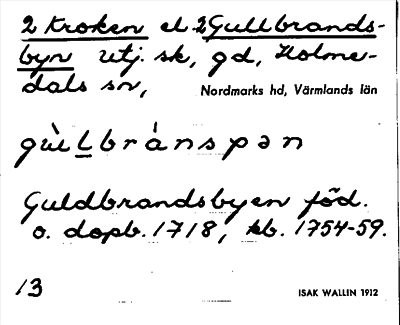 2 Kroken el. 2 Gullbrands-
byn utj. sk, gd, Holme-
dals sn,
Nordmarks hd, Värmlands län
gu̇̀l̲bránspən
Guldbrandsbyen föd.
o. dopb. 1718, kb. 1754-59.
13
ISAK WALLIN 1912